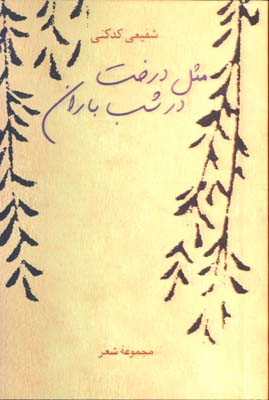 شفیعی کدکنی
مثل درخت
در شب باران
مجموعهٔ شعر